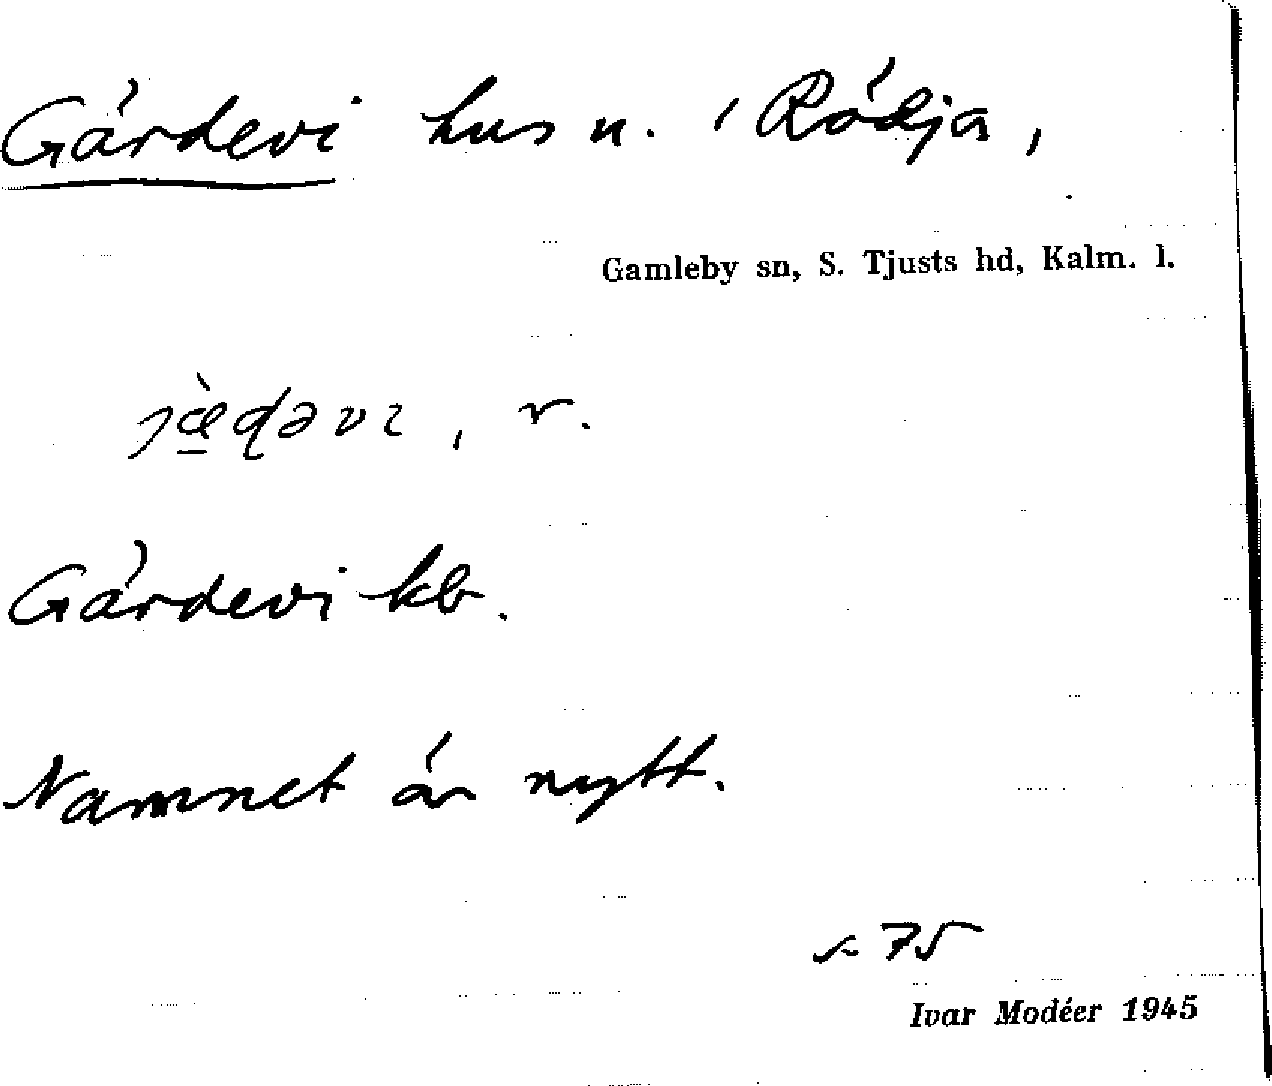 Gärdevi hus n. i Rödja,
Gamleby sn, S. Tjusts hd, Kalm. l.
jæ̀ḍəvı, r.
Gärdevi kb.
Namnet är nytt.
s. 75
Ivar Modéer 1945